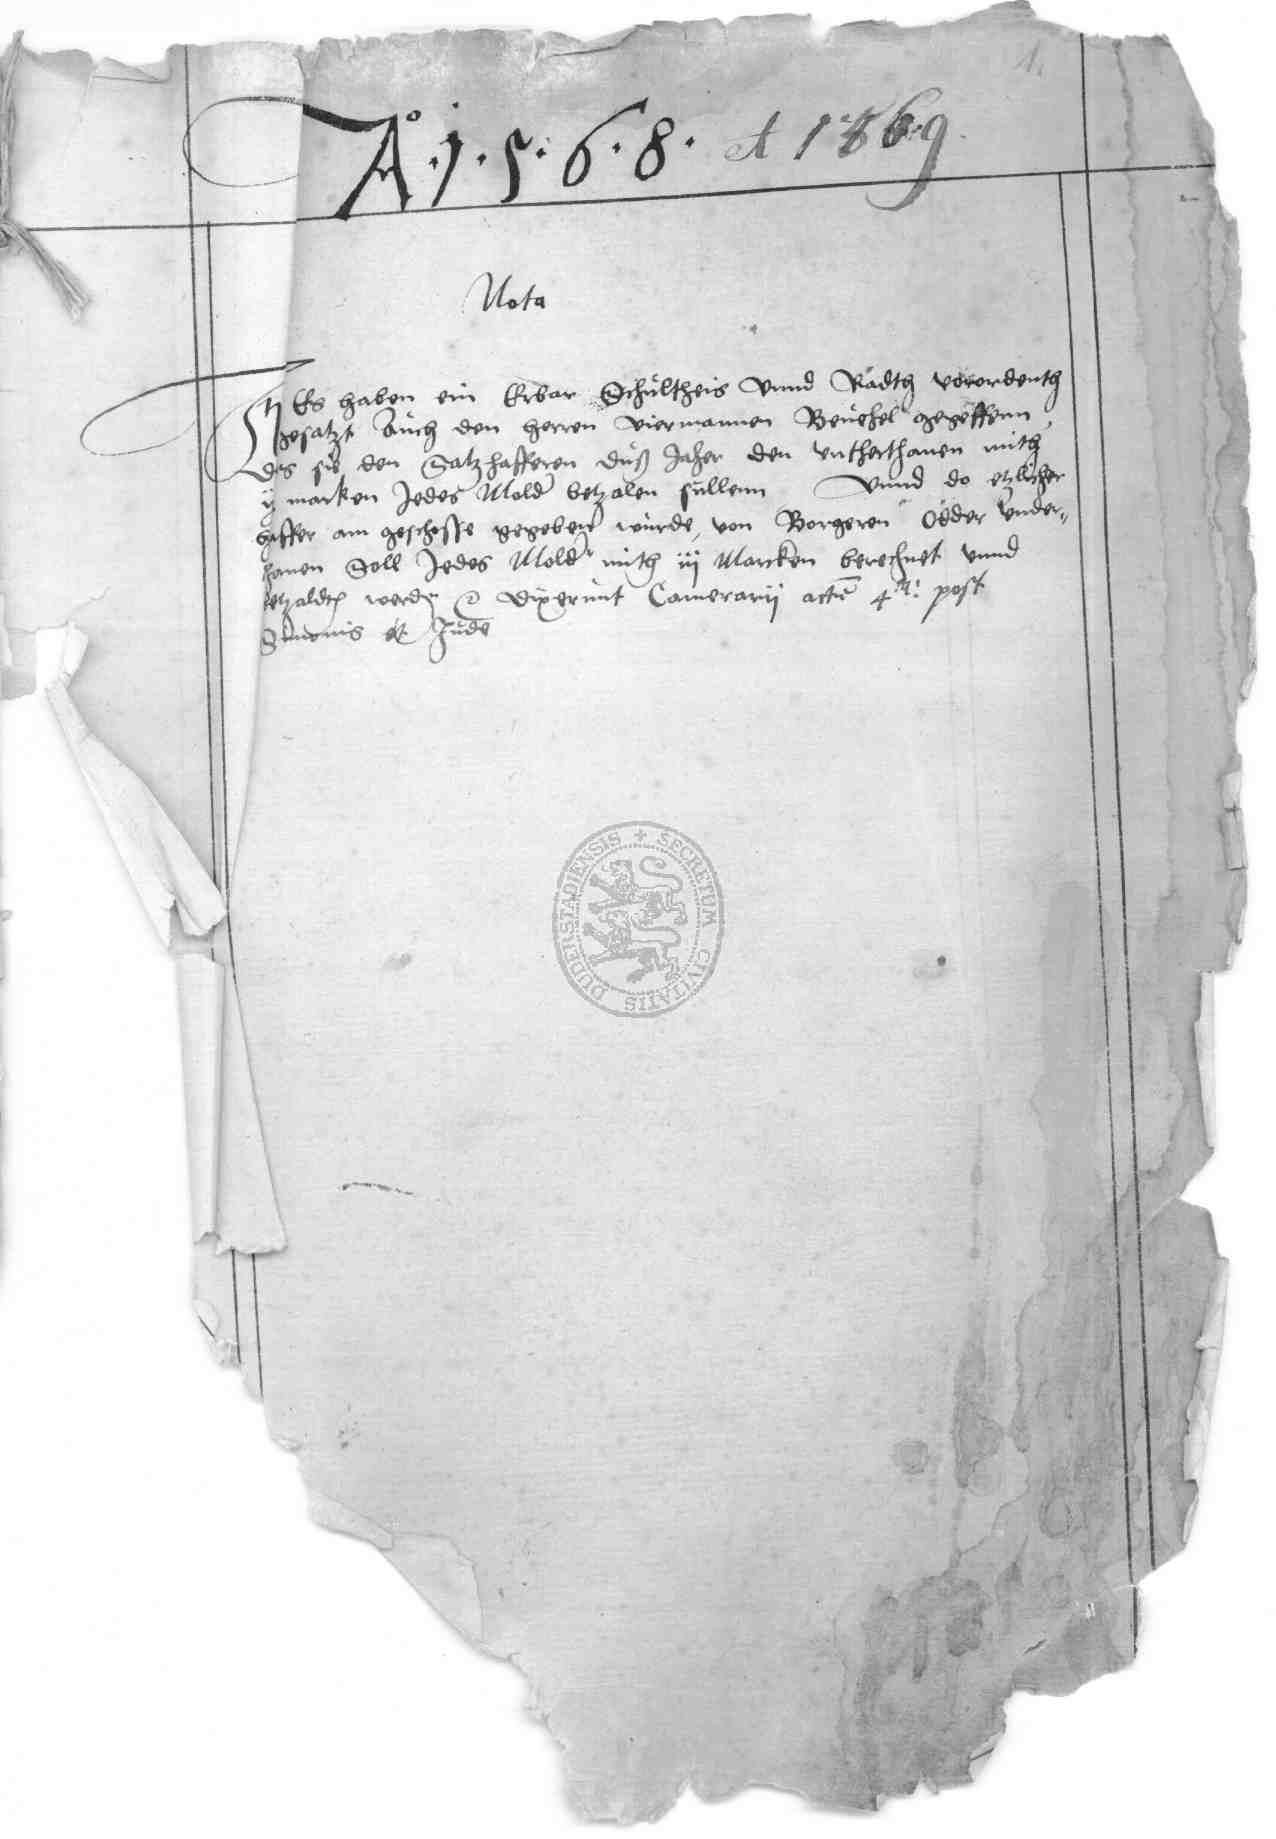 1.
Aº · 1 · 5 · 6 · 8 · et 1569
Nota
Es haben ein Erbar Schultheis Vnnd Radth vorordenth
gesatzt Auch den herren viermannen Beuehel gegeffenn
des sie den Satzhafferen duß Jaher den vntherthanen mith
ij marken Jedes Mold betzalen sullenn Vnnd do etzlicher
haffer am geschosse gegeben wurde, von Borgeren Odder vnder-
thanen Soll Jedes Mold mith iij Marcken berechnet vnnd
betzaldt werden dixerunt Camerarij 4ta post
Simonis et Jude
DUDERSTADIENSIS + SECRETUM CIVITATIS